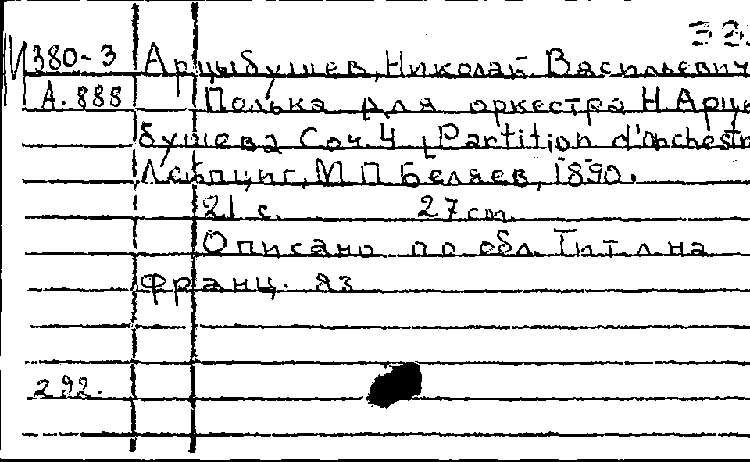 33
М380-3 Арцыбушев, Николай Васильевич
А. 888 Полька для оркестра Н. Арцы-
бушева Соч. 4 [Partition d'orchestr
Лейпциг, М. П. Беляев, 1890.
21 с. 27 cm.
Описано по обл. Тит. л. на
франц. яз
292.